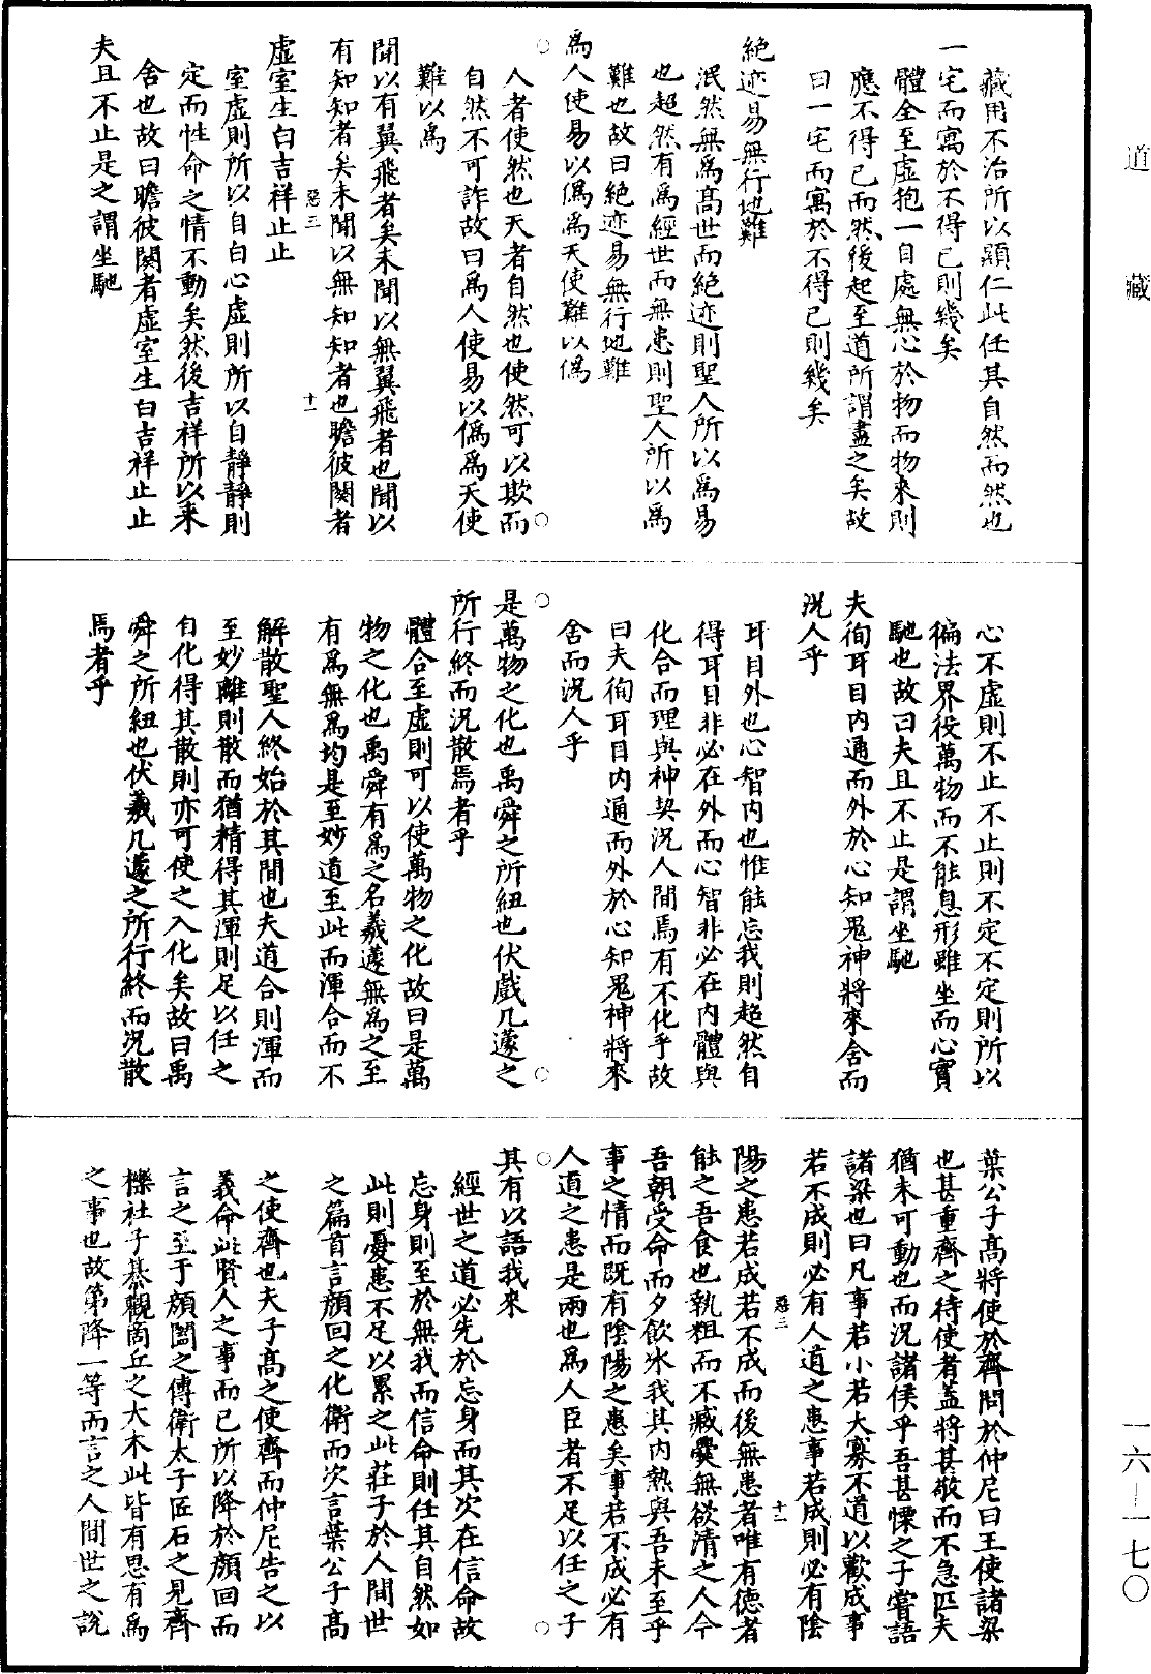 道藏
一六—一七〇
藏用不治所以顯仁此任其自然而然也
一宅而寓於不得已則幾矣
體全至虛抱一自處無心於物而物來則
應不得已而然後起至道所謂盡之矣故
曰一宅而寓於不得已則幾矣
絶迹易無行地難
泯然無爲高世而絶迹則聖人所以爲易
也超然有爲經世而無患則聖人所以爲
難也故曰絶迹易無行地難
爲人使易以僞爲天使難以僞
人者使然也天者自然也使然可以欺而
自然不可詐故曰爲人使易以僞爲天使
難以爲
聞以有翼飛者矣未聞以無翼飛者也聞以
有知知者矣未聞以無知知者也瞻彼闋者
惡三
十一
虛室生白吉祥止止
室虛則所以自白心虛則所以自靜靜則
定而性命之情不動矣然後吉祥所以来
舍也故曰瞻彼闋者虛室生白吉祥止止
夫且不止是之謂坐馳
心不虛則不止不止則不定不定則所以
徧法界役萬物而不能息形雖坐而心實
馳也故曰夫且不止是謂坐馳
夫徇耳目内通而外於心知鬼神將來舍而
況人乎
耳目外也心智内也惟能忘我則超然自
得耳目非必在外而心智非必在内體與
化合而理與神契況人間焉有不化乎故
曰夫徇耳目内通而外於心知鬼神將來
舍而況人乎
是萬物之化也禹舜之所紐也伏戲几蘧之
所行終而況散焉者乎
體合至虛則可以使萬物之化故曰是萬
物之化也禹舜有爲之名羲蘧無爲之至
有爲無爲均是至妙道至此而渾合而不
解散聖人終始於其間也夫道合則渾而
至妙離則散而猶精得其渾則足以任之
自化得其散則亦可使之入化矣故曰禹
舜之所紐也伏羲几蘧之所行終而況散
焉者乎
葉公子高將使於齊問於仲尼曰王使諸梁
也甚重齊之待使者蓋將甚敬而不急匹夫
猶未可動也而況諸侯乎吾甚慄之子嘗語
諸梁也曰凡事若小若大寡不道以歡成事
若不成則必有人道之患事若成則必有陰
惡三
十二
陽之患若成若不成而後無患者唯有德者
能之吾食也執粗而不臧爨無欲清之人今
吾朝受命而夕飲冰我其内熱與吾未至乎
事之情而既有陰陽之患矣事若不成必有
人道之患是兩也爲人臣者不足以任之子
其有以語我來
經世之道必先於忘身而其次在信命故
忘身則至於無我而信命則任其自然如
此則憂患不足以累之此莊子於人間世
之篇首言顏回之化衛而次言葉公子高
之使齊也夫子高之使齊而仲尼告之以
義命此賢人之事而已所以降於顏回而
言之至于顏闔之傳衛太子匠石之見齊
櫟社子綦觀商丘之大木此皆有思有爲
之事也故第降一等而言之人間世之說